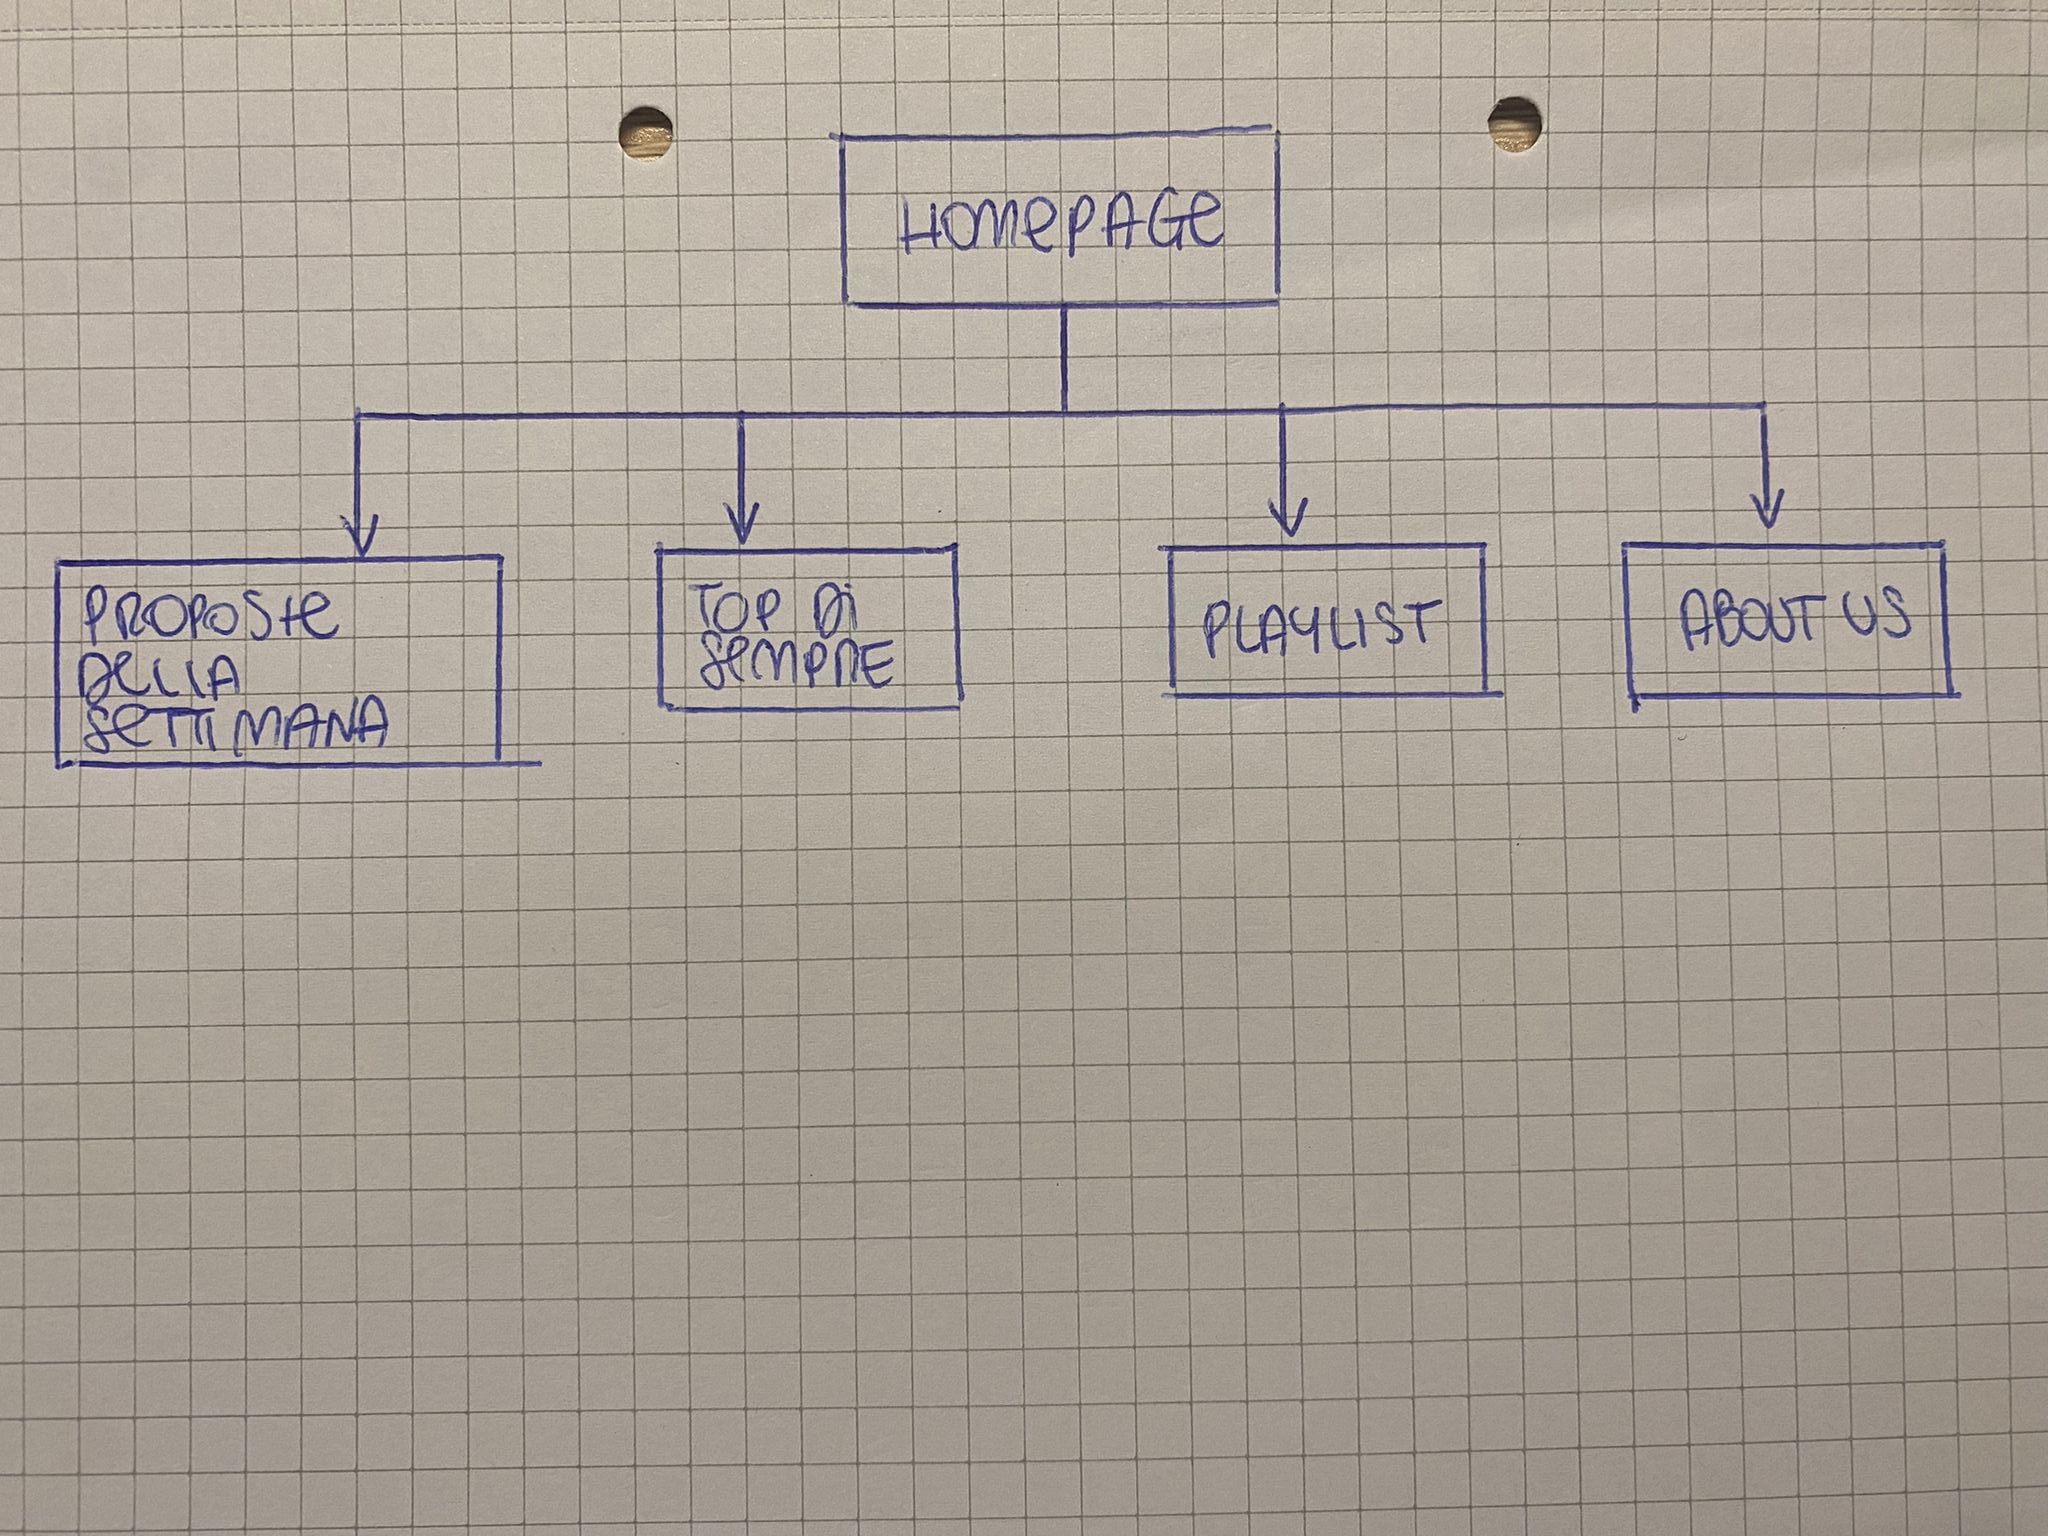 HOMEPAGE
PROPOSTE
DELLA
SETTIMANA
TOP DI
SEMPRE
PLAYLIST
ABOUT US